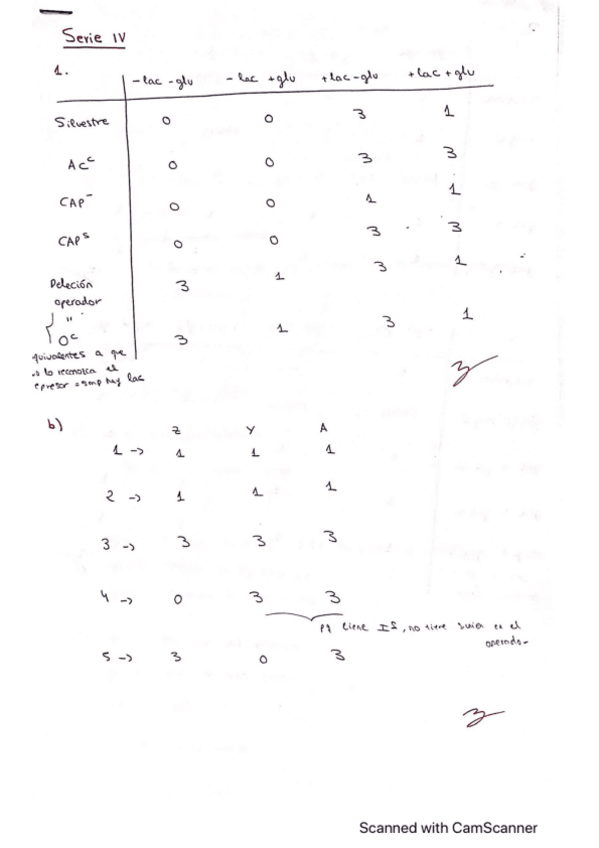 Serie IV
1.
-lac -glu   -lac +glu   +lac -glu   +lac +glu
Silvestre   0   0   3   1
Acᶜ   0   0   3   3
CAP⁻   0   0   1   1
CAPˢ   0   0   3   3
Deleción operador   3   1   3   1
"
Oᶜ   3   1   3   1
quivalentes a que
lo reconozca el
epresor lac
b)
Z   Y   A
1 → 1   1   1
2 → 1   1   1
3 → 3   3   3
4 → 0   3   3
tiene Iˢ, no tiene en el
5 → 3   0   3
Scanned with CamScanner